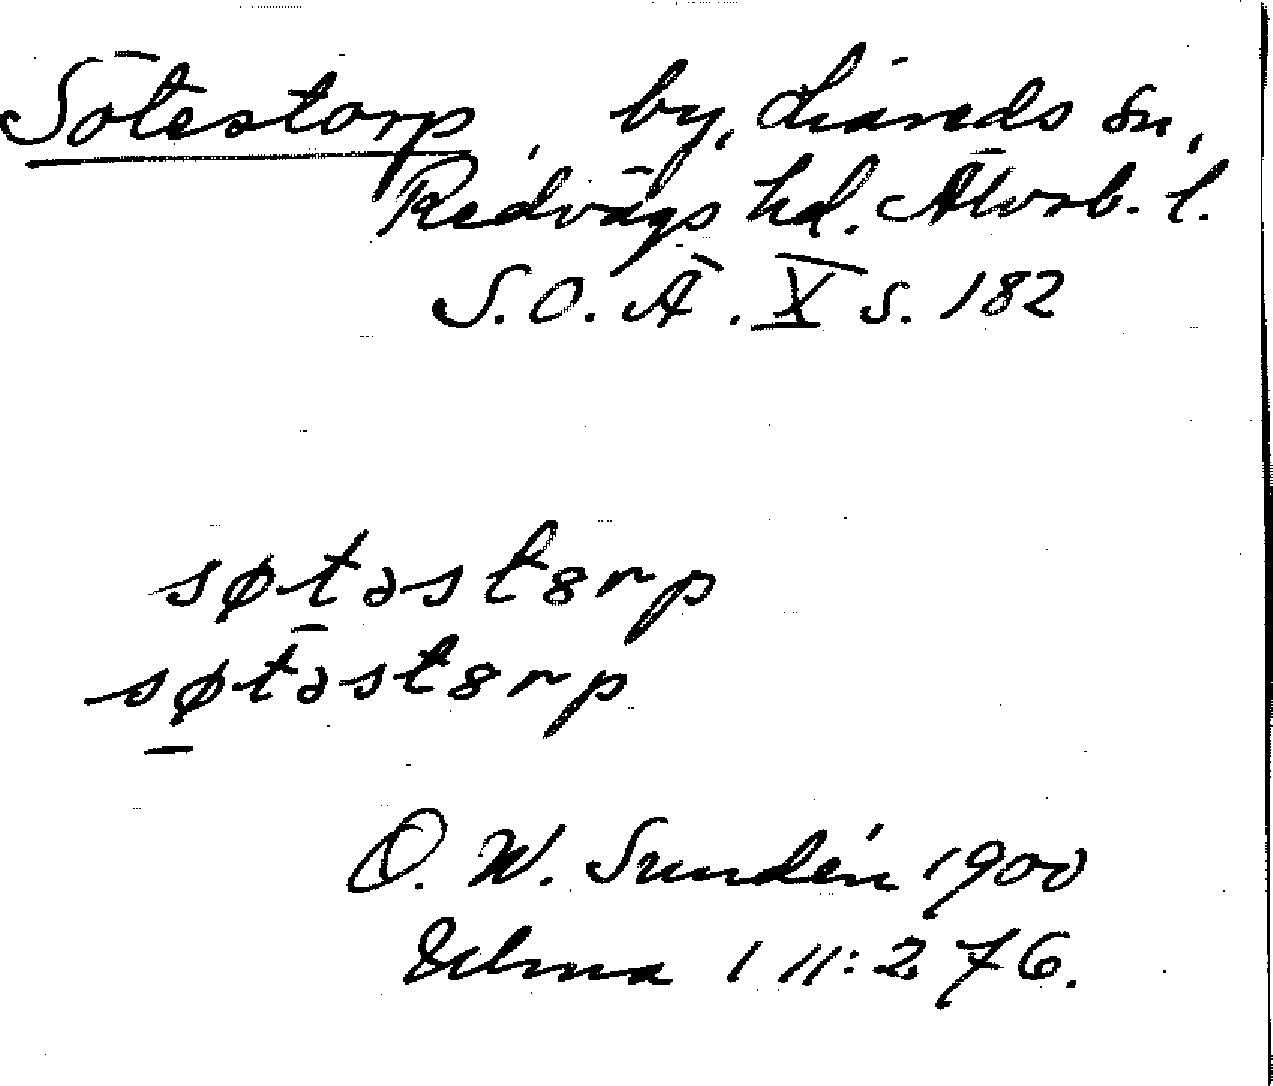 Sötestorp, by, Liareds sn,
Redvägs hd. Älvsb. l.
S.O.Ä. X s. 182
søtəst8rp
søtəst8rp
O. W. Sundén 1900
1 11:276.